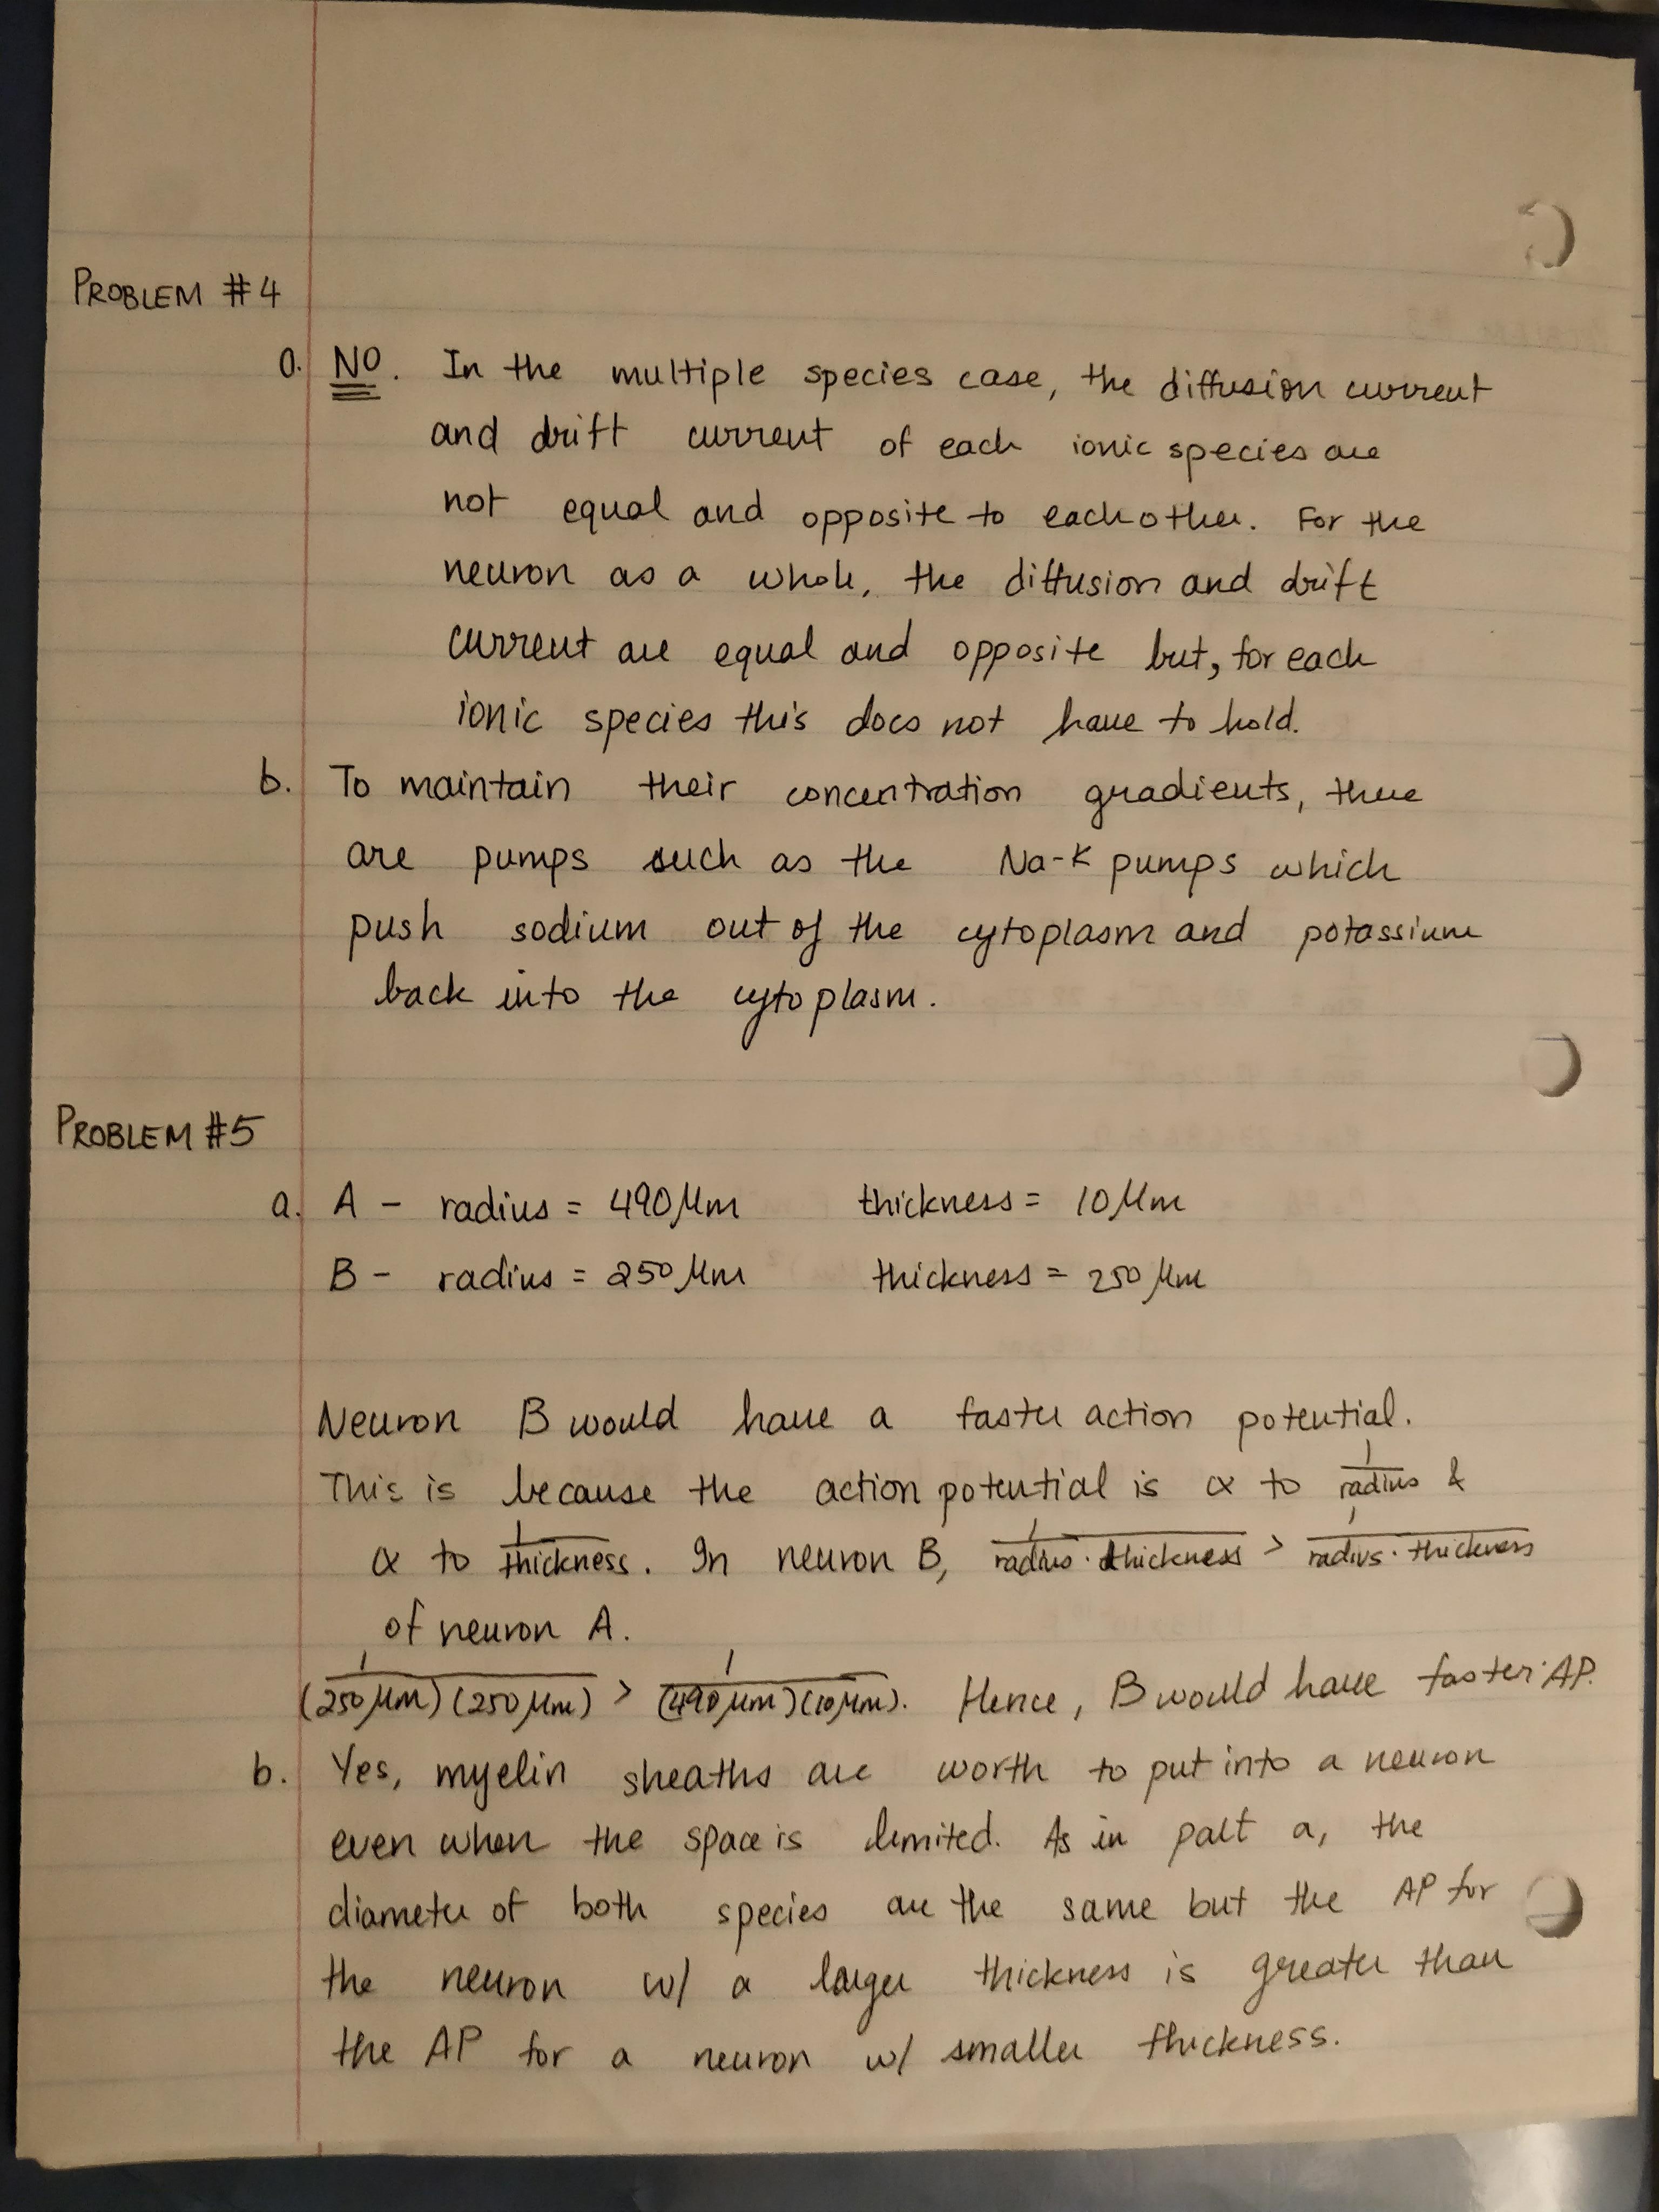 PROBLEM #4
a. NO. In the multiple species case, the diffusion current
and drift current of each ionic species are
not equal and opposite to each other. For the
neuron as a whole, the diffusion and drift
current are equal and opposite but, for each
ionic species this does not have to hold.
b. To maintain their concentration gradients, there
are pumps such as the Na-K pumps which
push sodium out of the cytoplasm and potassium
back into the cytoplasm.
PROBLEM #5
a. A - radius = 490 μm thickness = 10 μm
B - radius = 250 μm thickness = 250 μm
Neuron B would have a faster action potential.
This is because the action potential is ∝ to 1/radius &
∝ to 1/thickness. In neuron B, 1/radius · thickness > 1/radius · thickness
of neuron A.
1/(250 μm)(250 μm) > 1/(490 μm)(10 μm). Hence, B would have faster AP.
b. Yes, myelin sheaths are worth to put into a neuron
even when the space is limited. As in part a, the
diameter of both species are the same but the AP for
the neuron w/ a larger thickness is greater than
the AP for a neuron w/ smaller thickness.